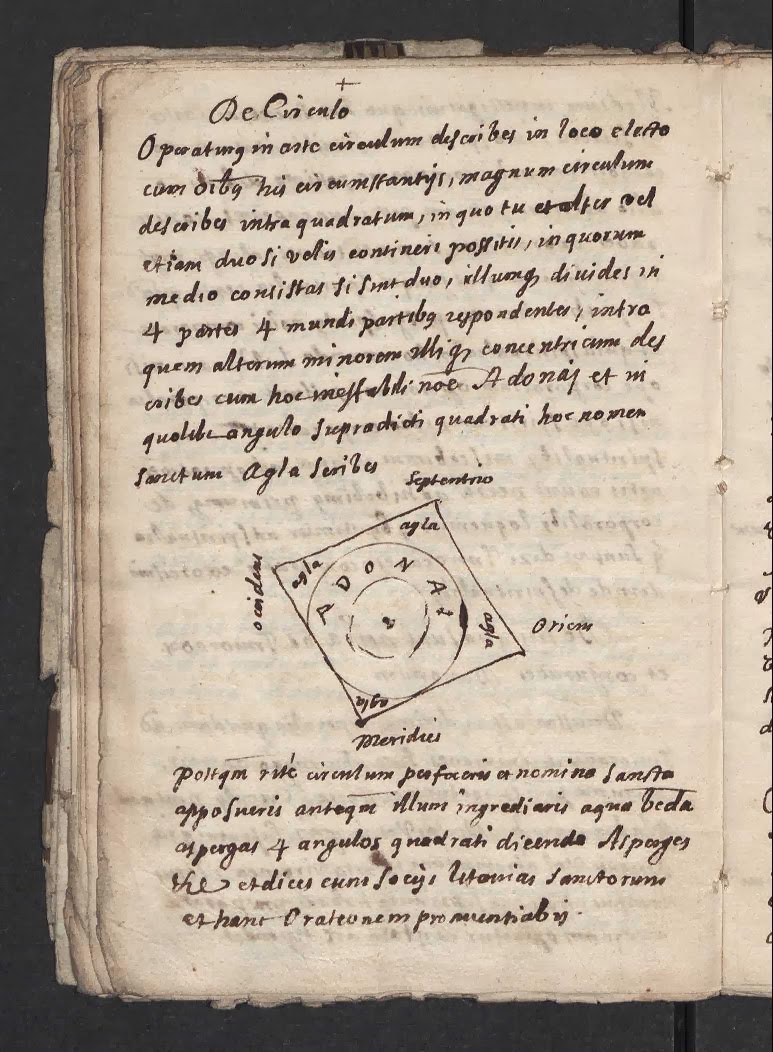 +
De Circulo
Operaturq in arte circulum describes in loco electo
cum oībq his circumstantijs, magnum circulum
describes intra quadratum, in quo tu et alter vel
etiam duo si velis contineri possitis, in quorum
medio consistas si sint duo, illumq divides in
4 partes 4 mundi partibq respondentes, intra
quem alterum minorem illiq concentricum des
cribes cum hoc ineffabili noē Adonaj et in
quolibe angulo supradicti quadrati hoc nomen
sanctum Agla scribes
Septentrio
agla
agla
occidens
ADONAI
agla
Oriens
agla
Meridies
postqm̄ rité circulum perfeceris et nomina sancta
apposueris anteqm̄ illum ingrediaris aqua b̄eda
aspergas 4 angulos quadrati dicendo Asperges
et dices cum socijs litanias sanctorum
et hanc Orationem pronuntiabis.